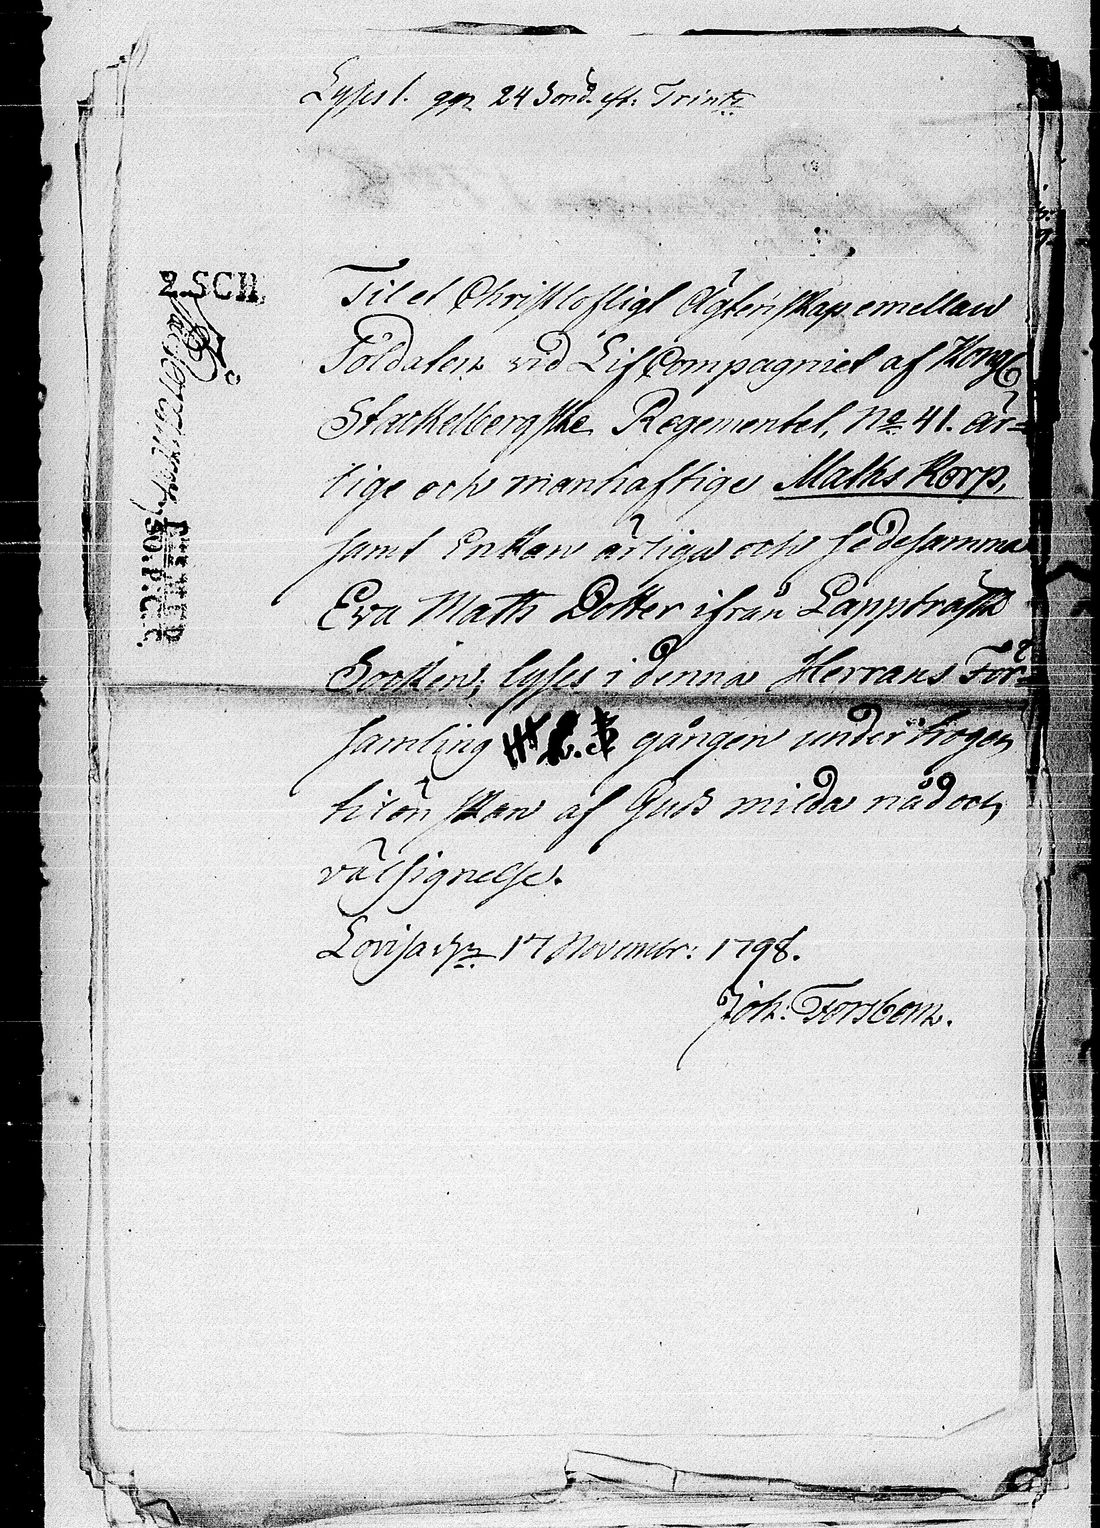 Lyses 1. ggn 24 Sönd. eft. Trint:
2. SCH.
Til et Christlofligt Ägtenskap emellan
Soldaten vid Lif Compagniet af Kongl
Stackelbergske Regementet, No 41. är=
lige och manhaftige Maths Korp,
samt Enkan ärliga och sedesamma
Eva Maths Dotter ifrån Lappträsk
Socken; lyses i denna Herrans För=
samling gången under trogen
tilönskan af Guds milda nåd och
välsignelse.
Lovisa d. 17 November: 1798.
Joh: Forsbom.